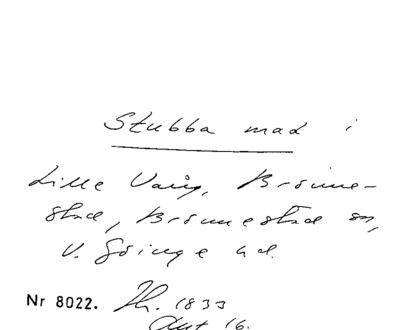 Stubba mad i
Lille Varig, Brönne-
stad, Brönnestad sn,
V. Göinge hd.
Nr 8022. Th. 1833
Akt 16.